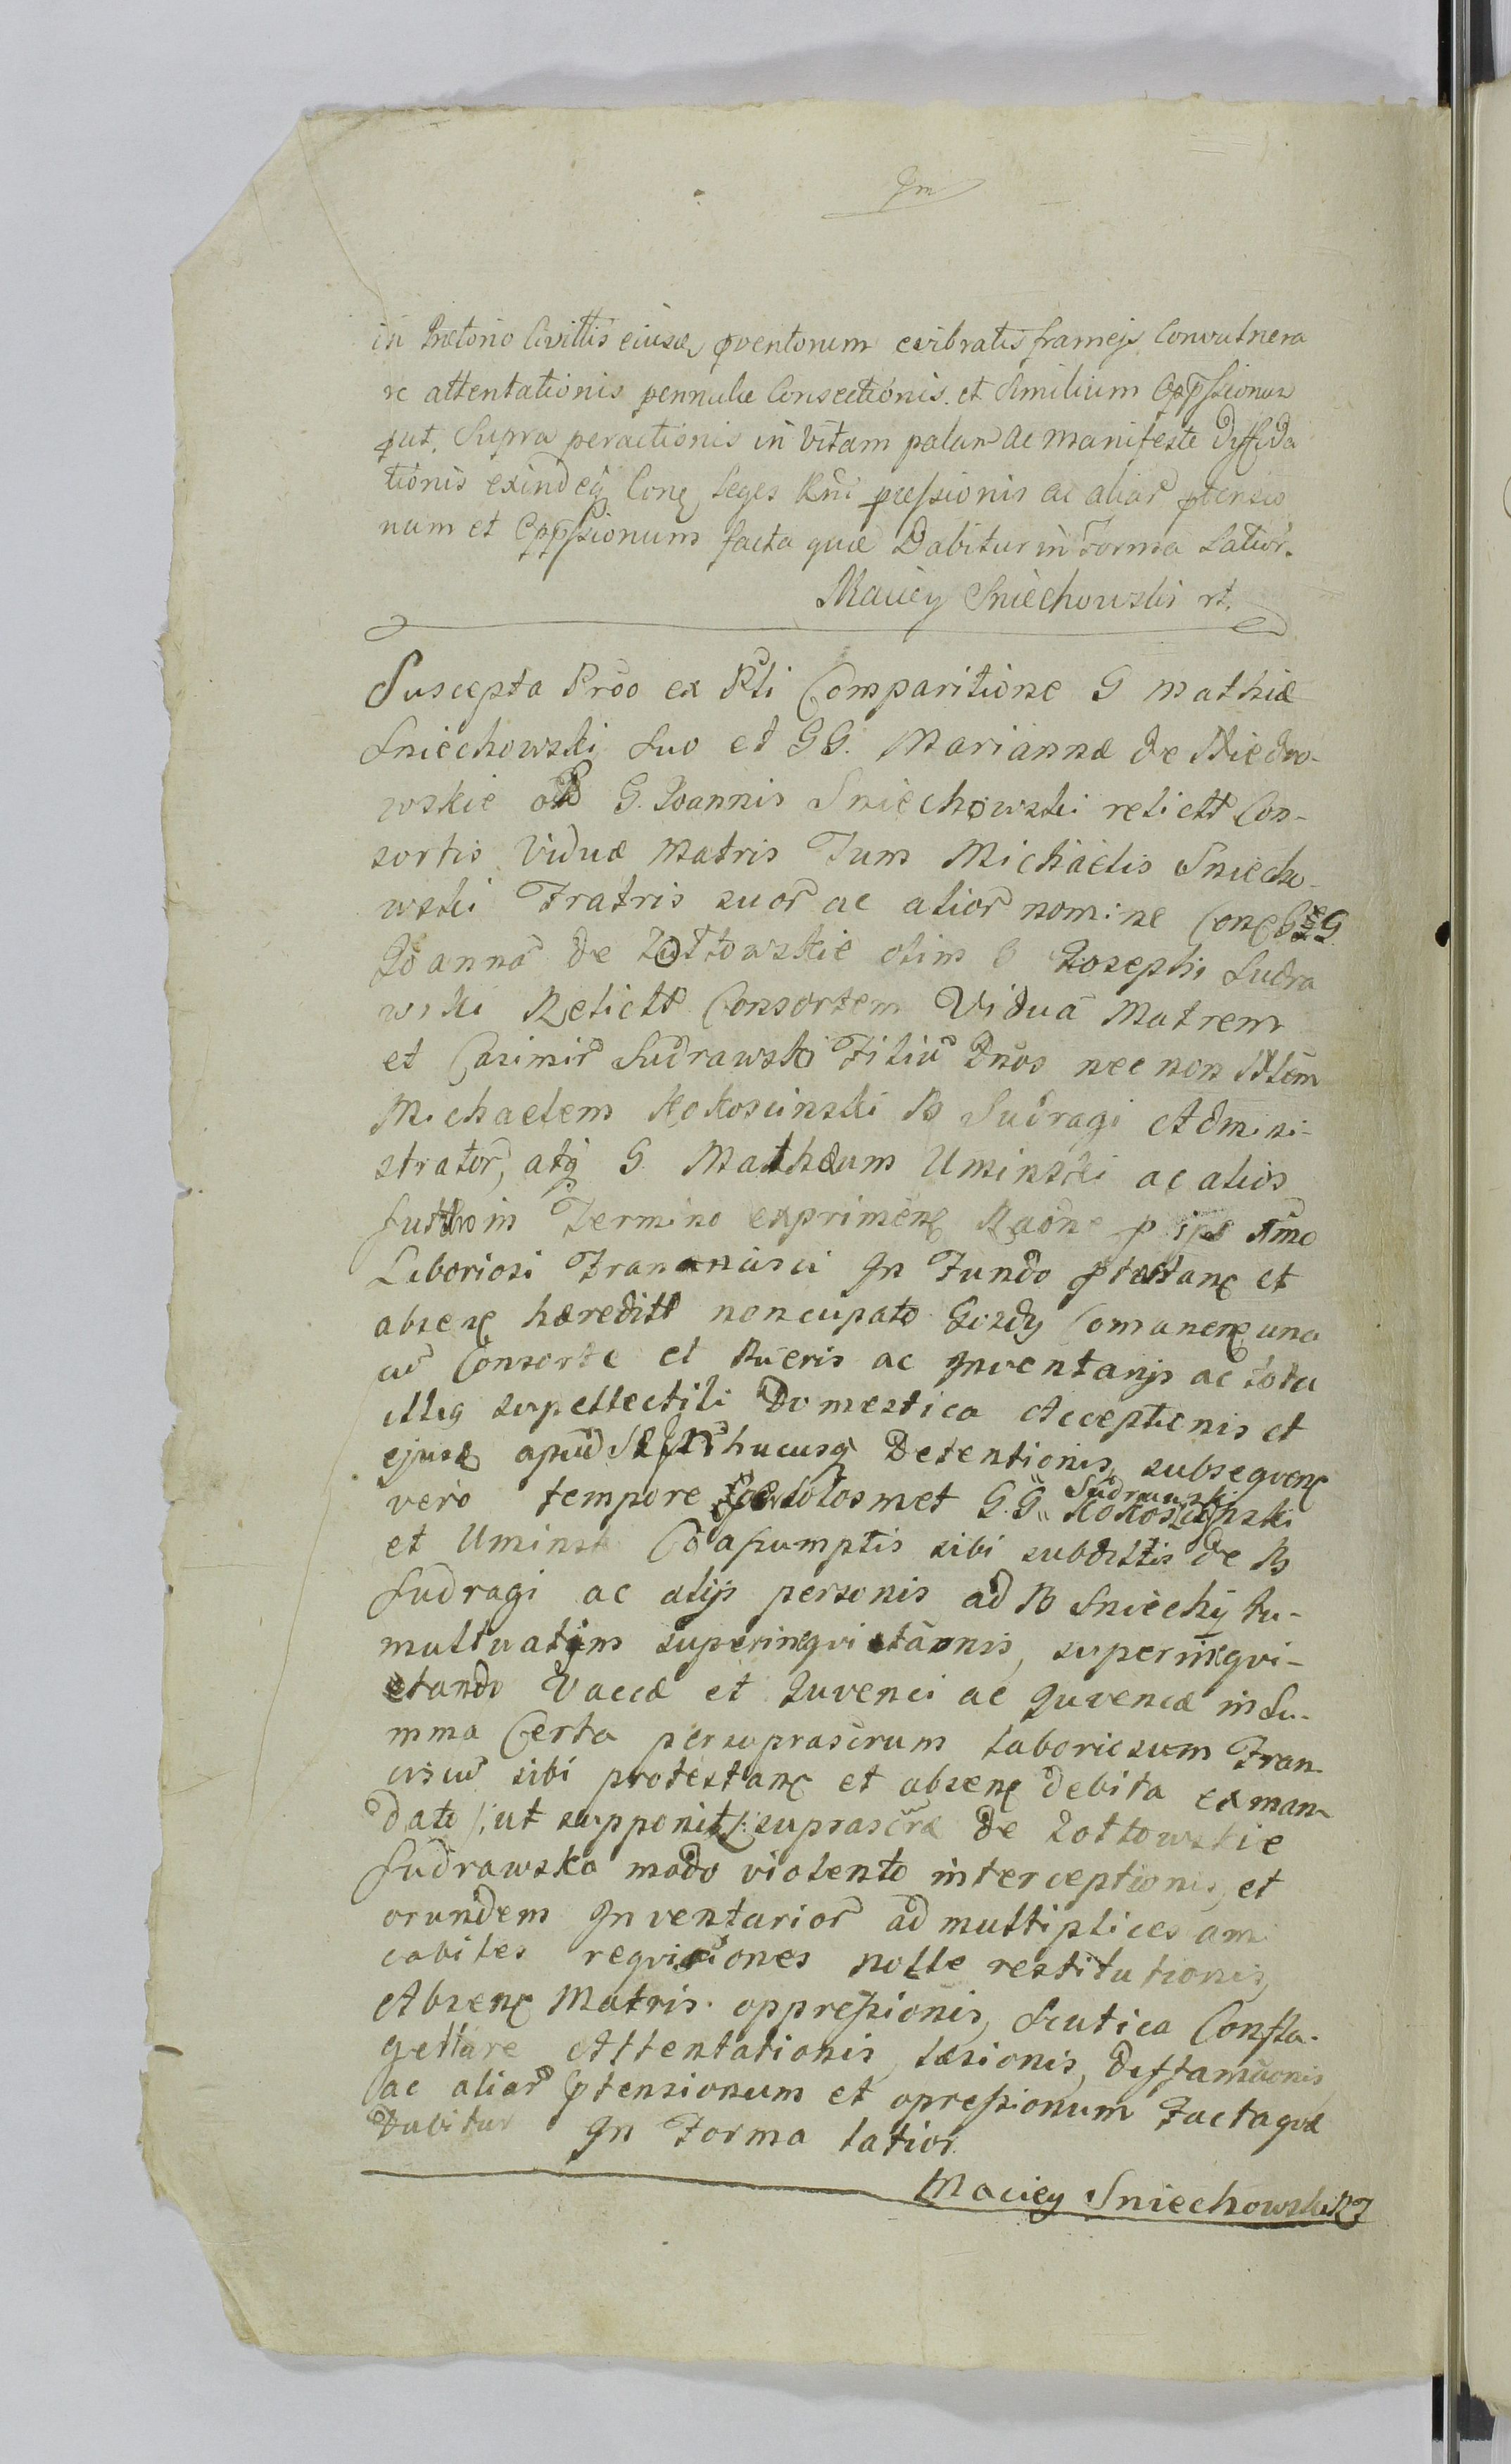 Jm
in Prætorio Civittis eiusd, pventorum evibratis frameis Convulnera
re attentationis pennulæ Consectionis. et Similium Oppssionum
put. Supra peractionis in Vitam palam ac manifeste Diffida
tionis exindeq Conq Leges Rni pressionis ac aliar ptensio
num et Oppssionum facta quæ Dabitur in Forma Latior.
Maciey Sniechowski rt.
Suscepta Proo ex Rli Comparitione G Mathiæ
Sniechowski Suo et GG. Mariannæ de
wskie G. Joannis Sniechowski relictt Con-
sortis Viduæ Matris Tum Michaelis Sniecho-
wski Fratris suor ac alior nomine Conq G
Joanna De Zołtowskie olim G Josephi Sudra
wski Relictt Consortem Vidua Matrem
et Casimir Sudrawski Filiu Dnos nec non
Michaelem Kokoscinski B Sudragi Admini-
strator, atq G. Mathæum Uminski ac alios
in Termino expriménq Raone p
Laboriosi Francisci In Fundo ptestanq et
absenq hæreditt noncupato Gozdy Comanenq una
cu Consorte et Pueris ac Inventarys ac tota
illiq supellectili Domestica Acceptionis et
ejusd apud hucusq Detentionis, subsequenq
vero tempore G.G. Sudrawski Kokoscinski
et Uminski Coassumptis sibi subdittis De B
Sudragi ac alijs personis ad B Sniechy tu-
multuatim superinequitaonis, superinequi-
tando Vaccæ et Juvenci ac Juvencæ in Su-
mma Certa per suprascrum Laboriosum Fran
ciscu sibi protestanq et absenq debita ex man-
dato /: ut supponit :/ suprascræ De Zołtowskie
Sudrawska modo violento interceptionis, et
orundem Inventarior ad multiplices ami
cabiles requisiones nolle restitutionis,
Absenq Matris oppressionis, Scutica Confla-
gellare Attentationis, læsionis, Diffamaonis
ac aliar ptensionum et opressionum Facta quæ
Dabitur In Forma latior.
Maciey Sniechowski